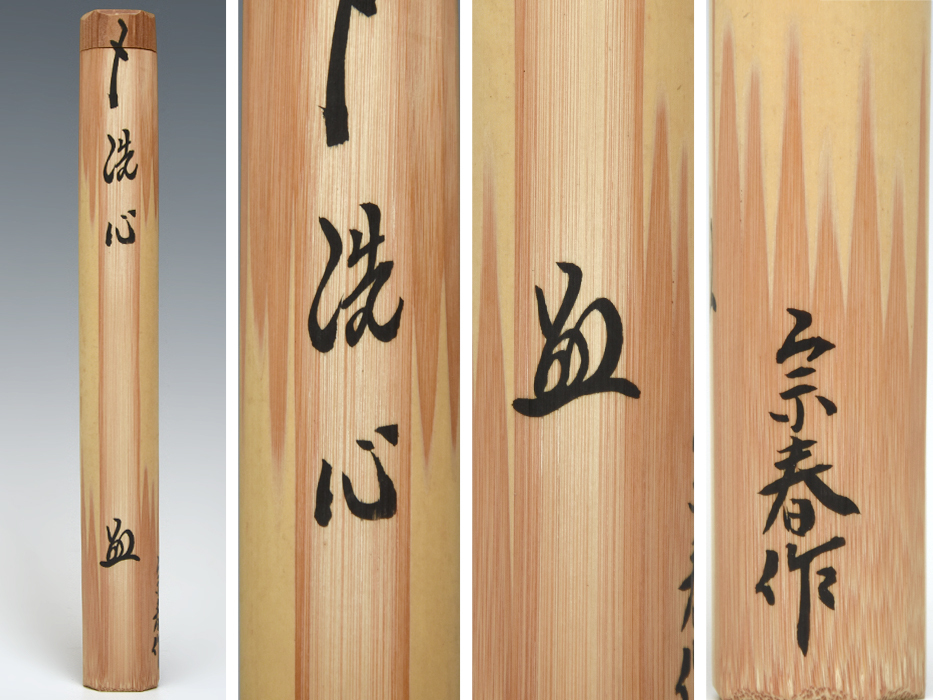 〆
洗心
洗心
宗春作